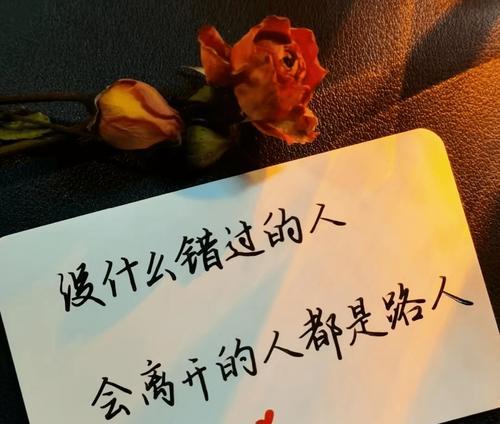 没什么错过的人
会离开的人都是路人